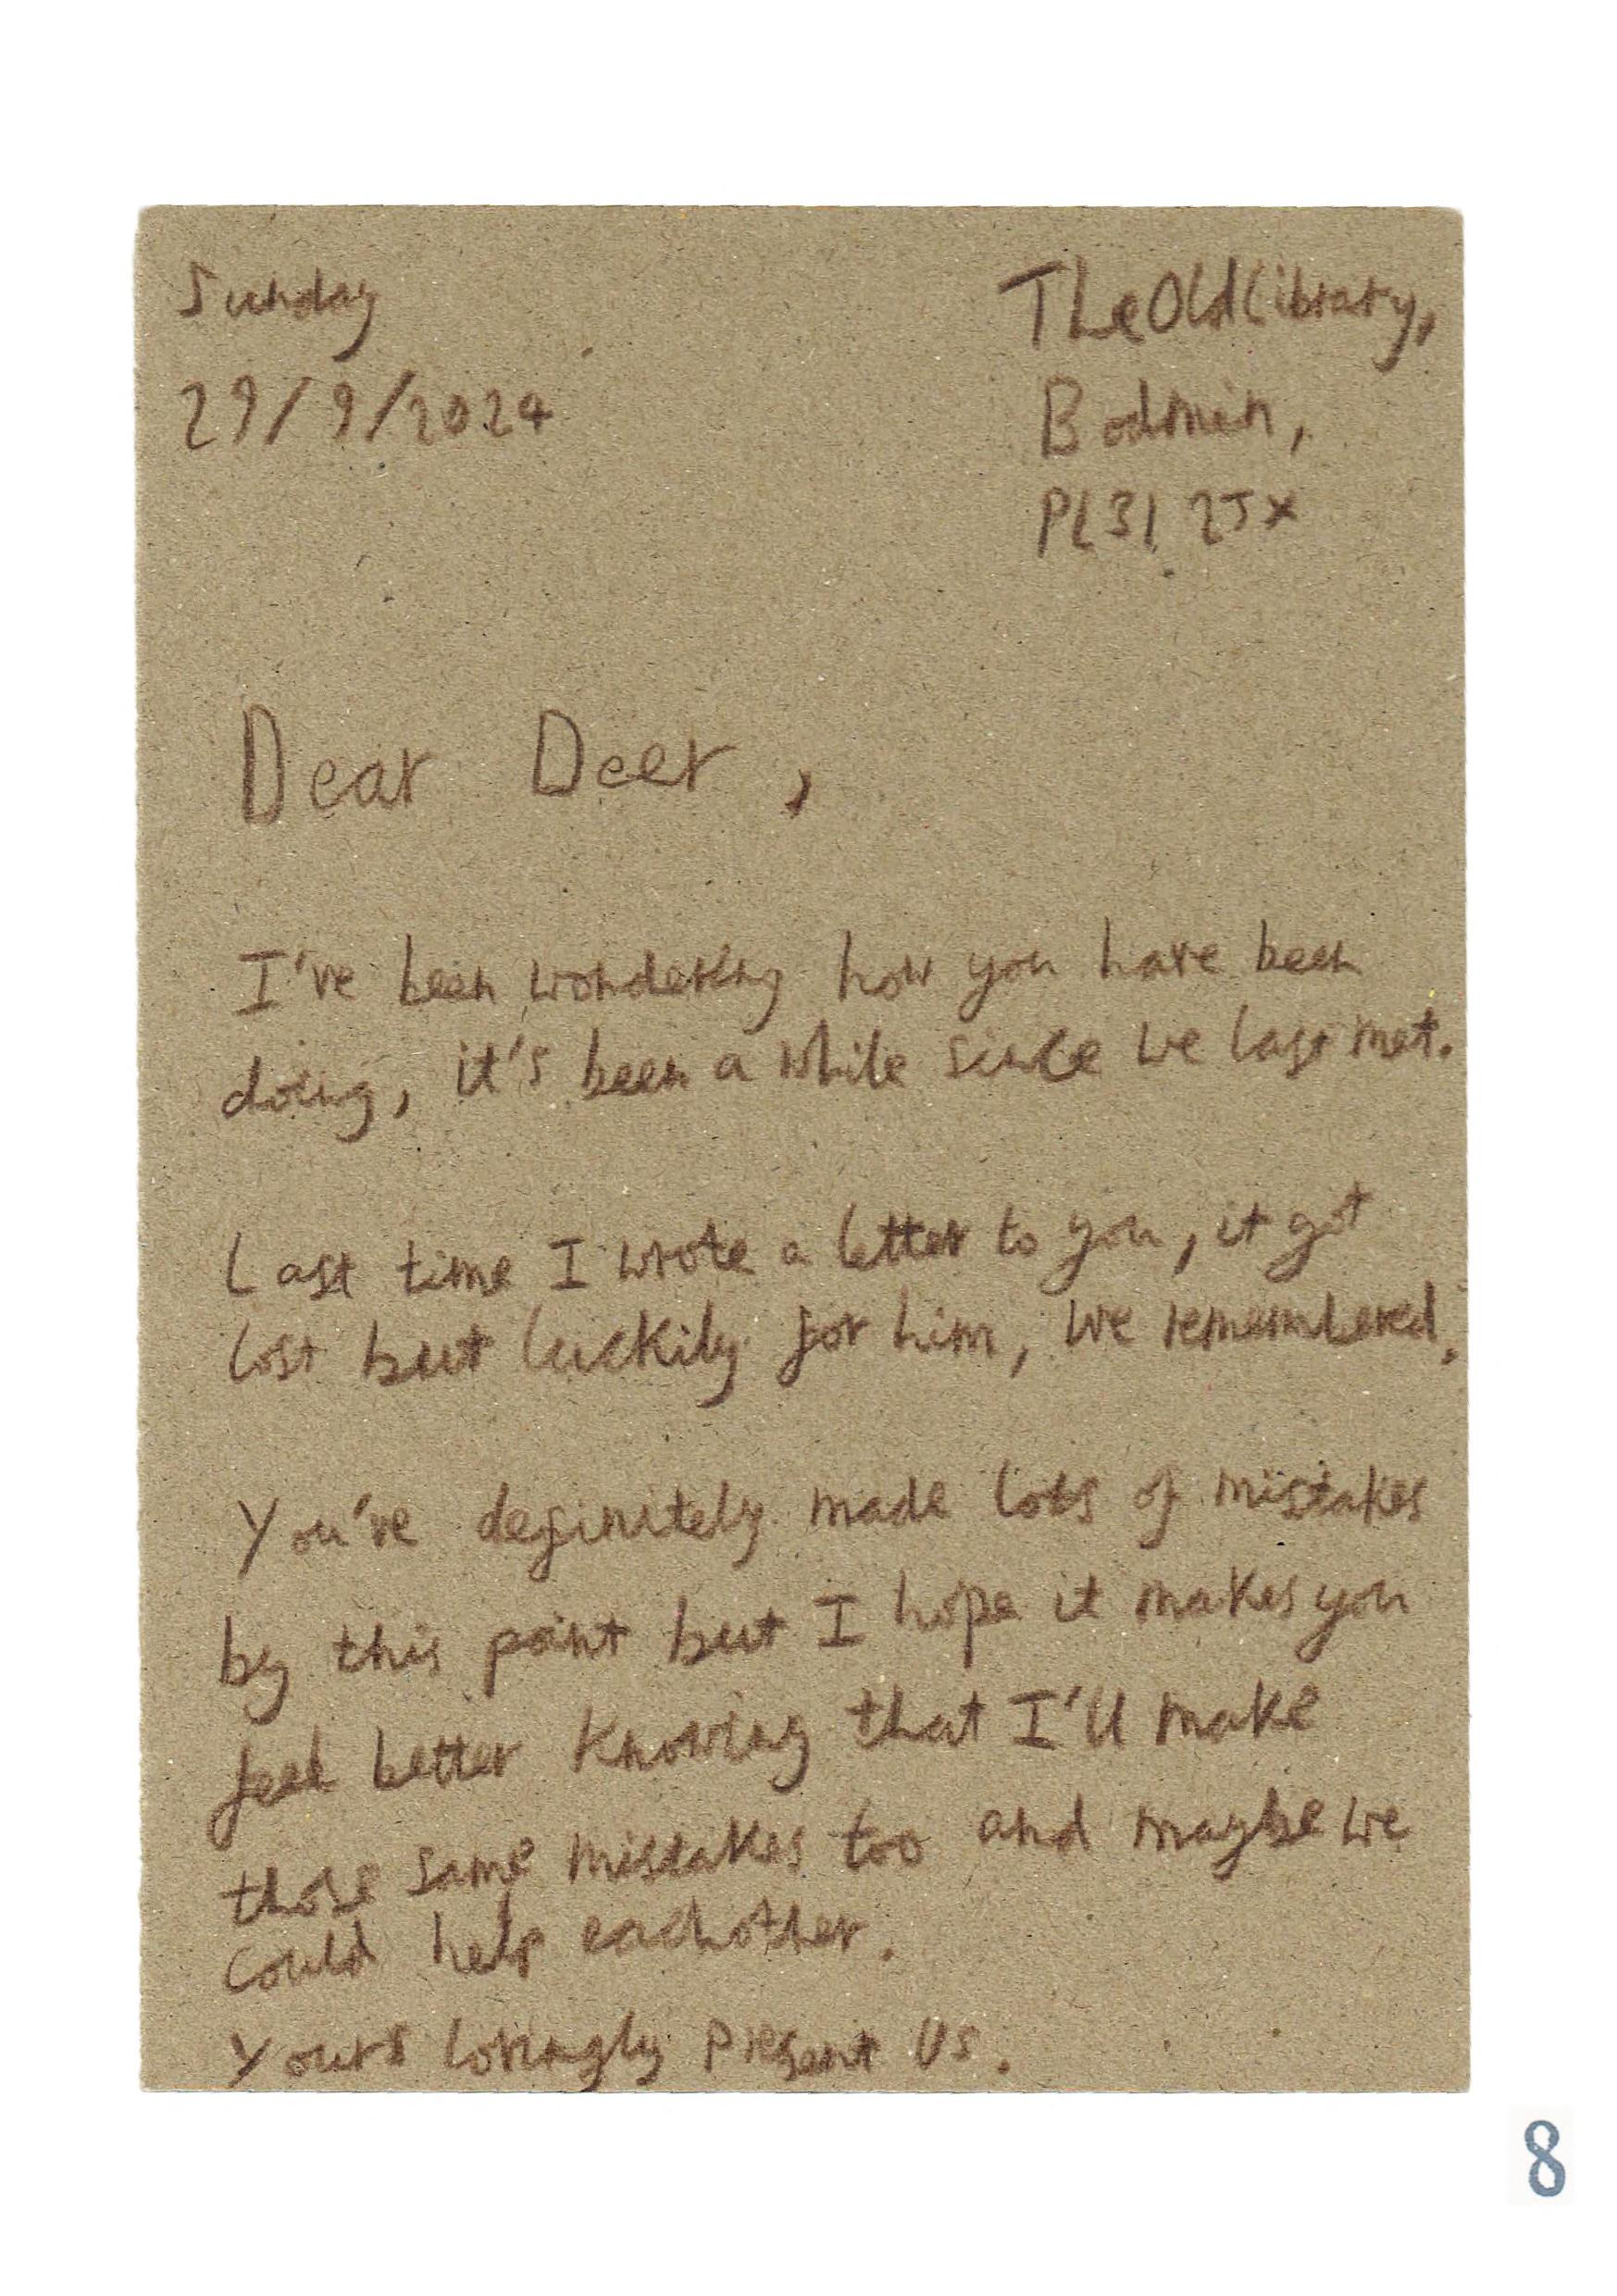 Sunday
29/9/2024
The Old Library,
Bodmin,
PL31 2JX
Dear Deer,
I've been wondering how you have been
doing, it's been a while since we last met.
Last time I wrote a letter to you, it got
lost but luckily for him, we remembered.
You've definitely made lots of mistakes
by this point but I hope it makes you
feel better knowing that I'll make
those same mistakes too and maybe we
could help eachother.
Yours lovingly Present Us.
8